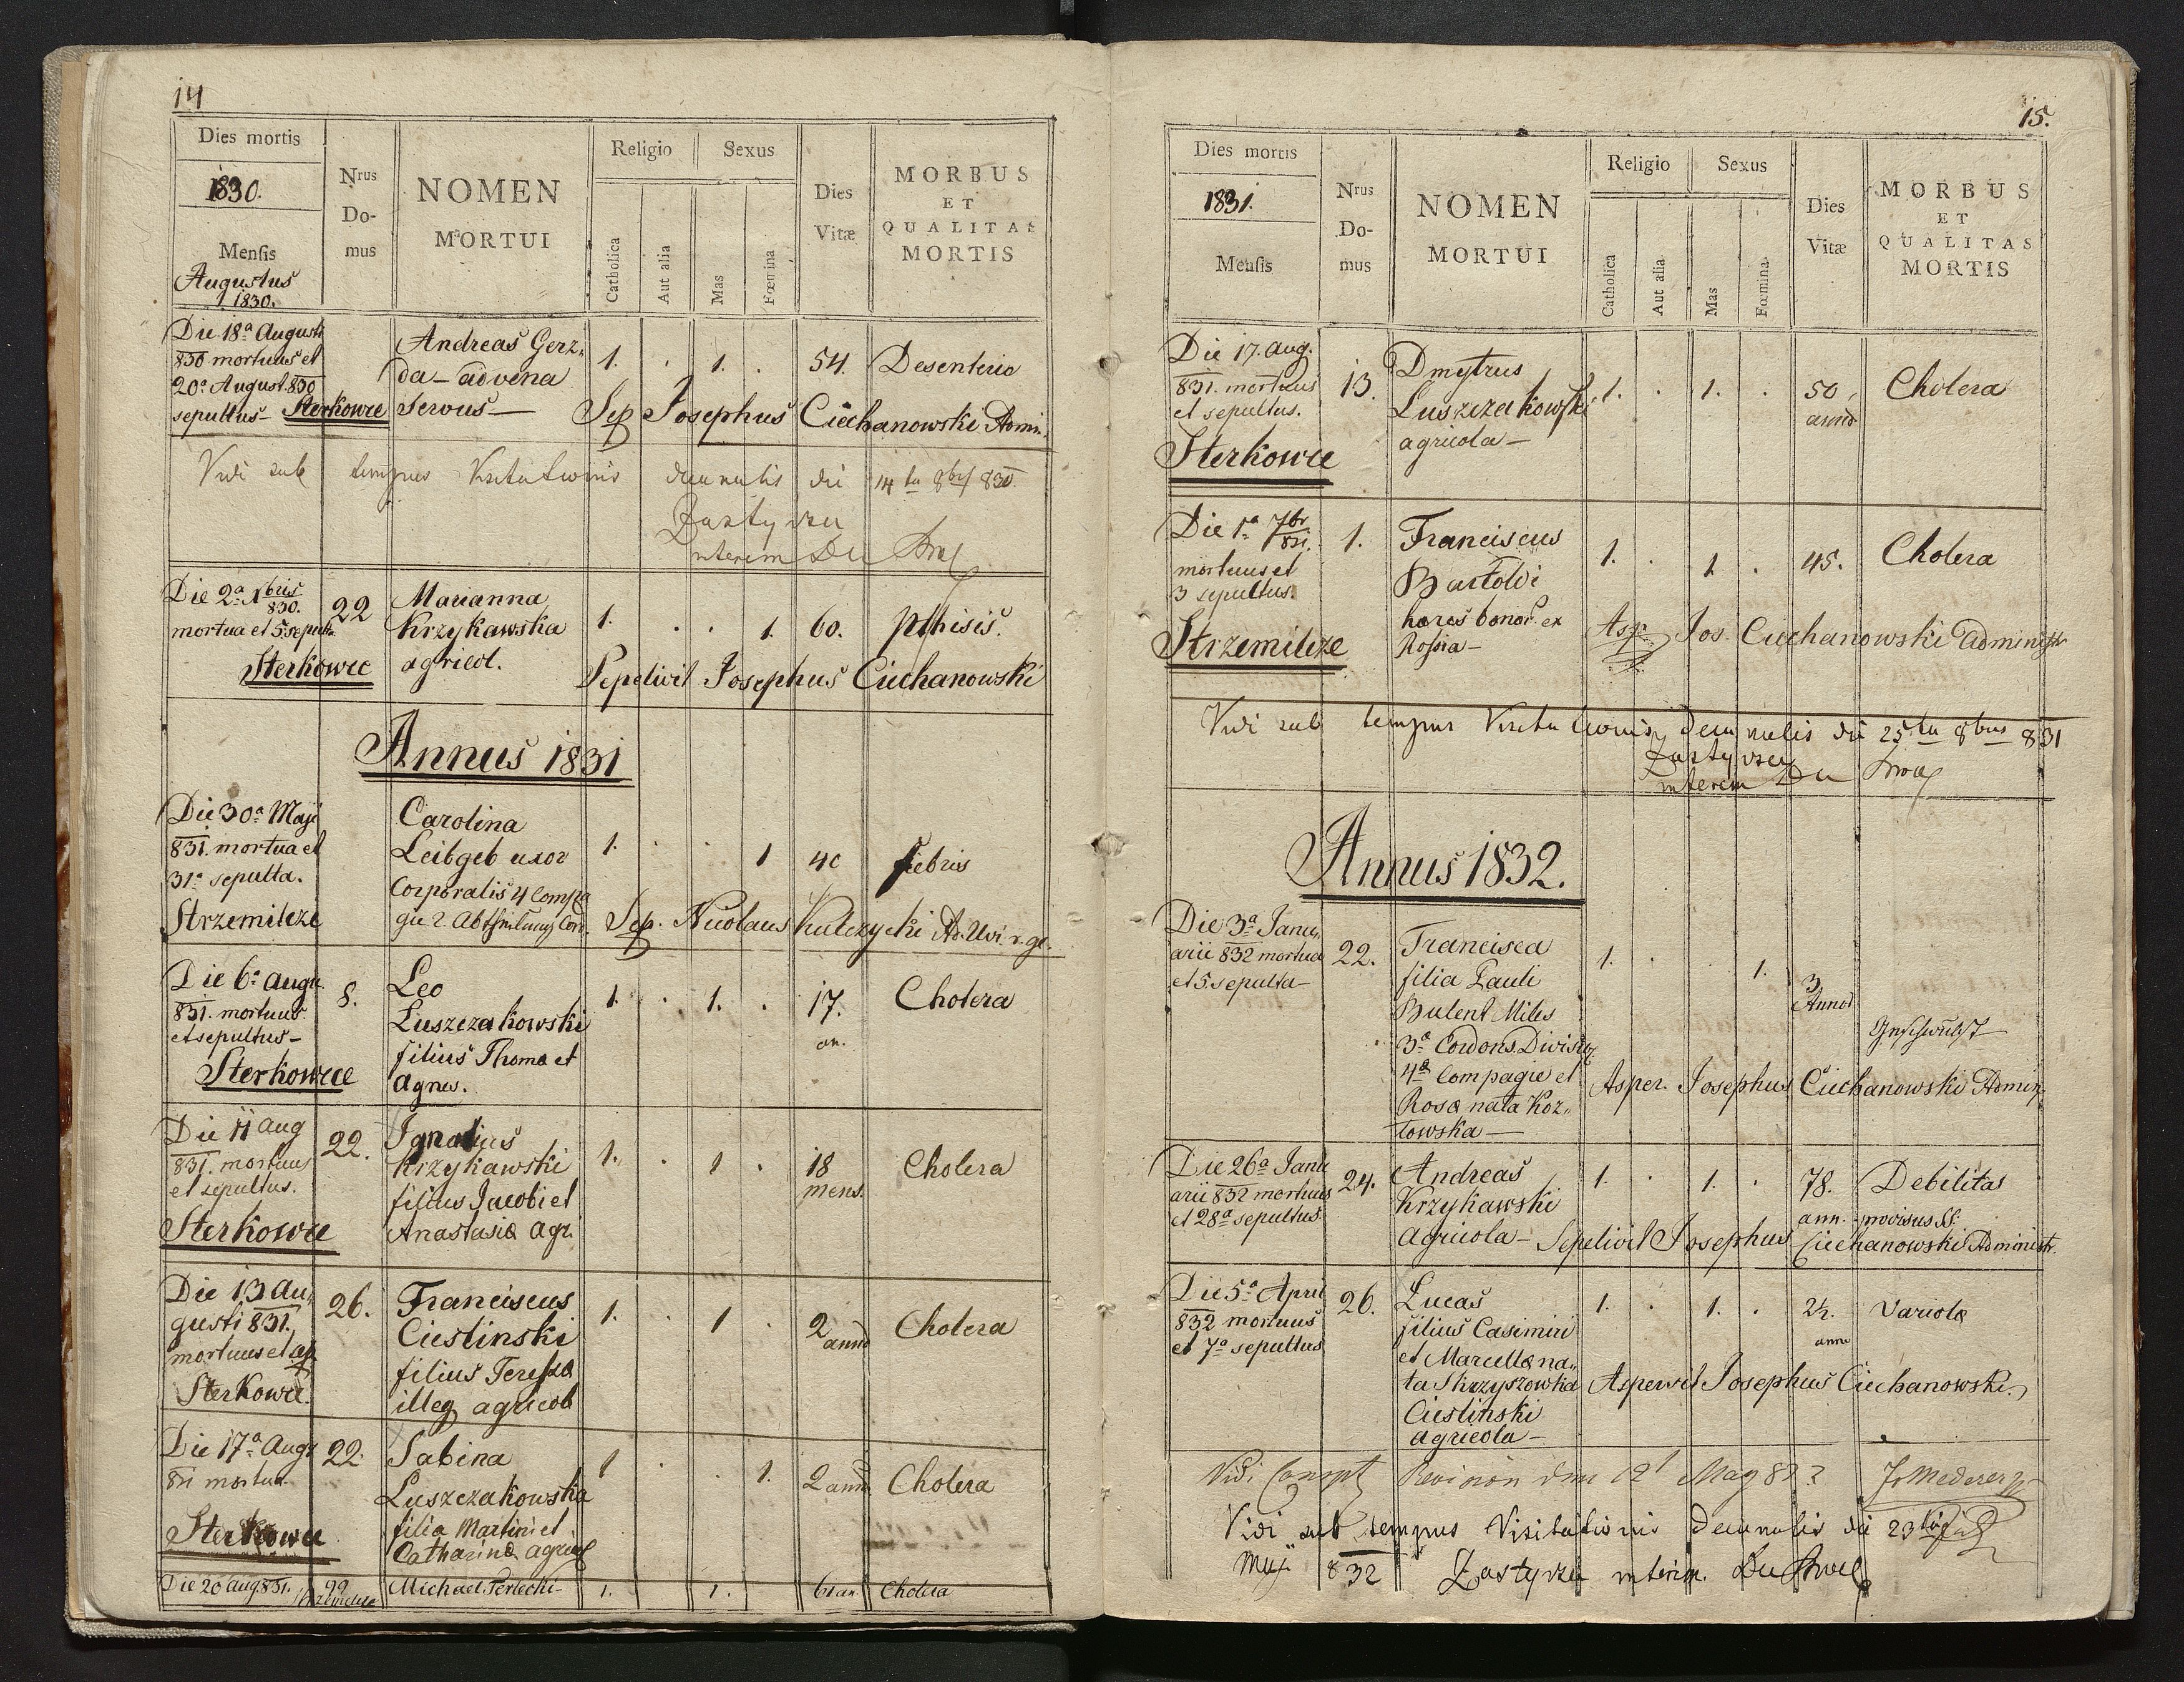 14
Dies mortis
1830.
Mensis
Augustus
1830.
Nrus
Do-
mus
NOMEN
MORTUI
Religio
Catholica
Aut alia
Sexus
Mas
Fœmina
Dies
Vitæ
MORBUS
ET
QUALITAS
MORTIS
Die 18a Augusti
830 mortuus et
20a August 830
sepultus – Sterkowce
Andreas Gerz„
da – advena
servus –
1. . 1. . 54. Desenteria
Sep Josephus Ciechanowski Admin.
Vidi sub tempus Visitationis decanalis die 14ta 8bris 830
Zastyrzu
interim Dec
Die 2a Xbris
830.
mortua et 5 sepulta
Sterkowce
22
Marianna
Krzykawska
agricol.
1. . . 1. 60. Pthisis.
Sepelivit Josephus Ciechanowski
Annus 1831
Die 30a Maji
831. mortua et
31a sepulta.
Strzemilcze
Carolina
Leibgeb uxor
Corporalis 4 Compa
gie 2. Abtheilung Cord.
1. . . 1 40 febris
Sep. Nicolaus Kulczycki
Die 6a Augu
831. mortuus
et sepultus –
Sterkowce
8.
Leo
Luszczakowski
filius Thoma et
Agnes.
1. . 1. . 17.
an.
Cholera
Die 11 Aug
831. mortuus
et sepultus.
Sterkowce
22.
Ignatius
Krzykawski
filius Jacobi et
Anastasia Agr.
1. . 1 . 18
mens.
Cholera
Die 13 Au„
gusti 831.
mortuus et sep.
Sterkowce.
26.
Franciscus
Cieslinski
filius Teressa
illeg agricol
1. . 1 . 2
anno
Cholera
Die 17a Aug
831 mortua
Sterkowce
22.
Sabina
Luszczakowska
filia Martini et
Catharina agricol
1 . . 1. 2 ann Cholera
Die 20 Aug 831.
22
Strzemilcze
Michael Perlecki –
1. . 1. 61 an Cholera
15.
Dies mortis
1831.
Mensis
Nrus
Do-
mus
NOMEN
MORTUI
Religio
Catholica
Aut alia
Sexus
Mas
Fœmina.
Dies
Vitæ
MORBUS
ET
QUALITAS
MORTIS
Die 17. Aug.
831. mortuus
et sepultus.
Sterkowce
13.
Dmytrus
Luszczakowski
agricola –
1. . 1. . 50,
anno
Cholera
Die 1a 7br
831.
mortuus et
3 sepultus.
Strzemilcze
1.
Franciscus
Bartoldi
hæres bonor. ex
Rossia –
1. . 1 . 45. Cholera
Asp. Jos. Ciechanowski Administr
Vidi sub tempus Visitationis Decanalis die 25ta 8bris 831
Zastyrzu
interim Dec
Annus 1832.
Die 3a Janu„
arii 832 mortua
et 5 sepulta –
22.
Francisca
filia Pauli
Bulent Miles
3a Cordons. Divis
4a Compagie et
Rosa nata Koz„
lowska –
1. . . 1. 3
Annor
Geschwulst
Asper. Josephus Ciechanowski Admin.
Die 26a Janu
arii 832 mortuus
et 28a sepultus
24.
Andreas
Krzykawski
Agricola –
1. . 1. . 78.
ann.
Debilitas
provisus SS.
Sepelivit Josephus Ciechanowski Administr.
Die 5a April
832 mortuus
et 7a sepultus
26.
Lucas
filius Casimiri
et Marcella na„
ta Skrzyszowka
Cieslinski
agricola –
1. . 1. . 2½.
anno
Variola
Aspersit Josephus Ciechanowski.
Vidi Conspt Revision den 12t May 832 J. Mederer
Vidi sub tempus Visitationis decanalis die 23tia
Maji 832 Zastyrzu interim. Dec